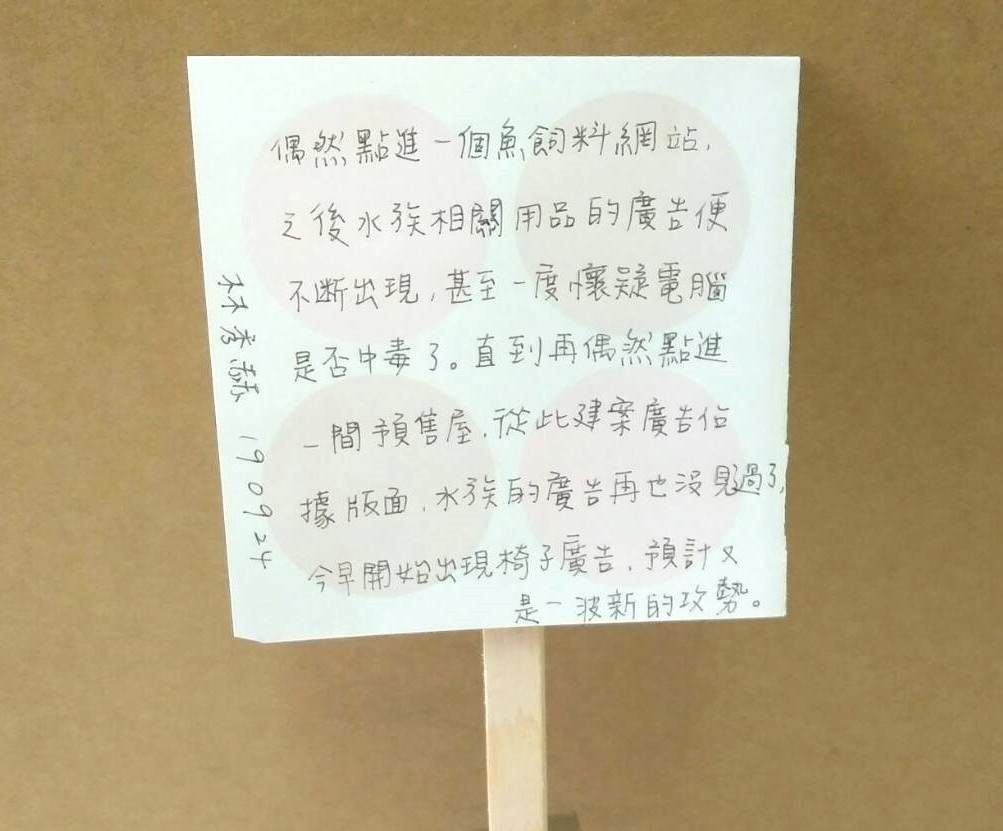 偶然點進一個魚飼料網站,
之後水族相關用品的廣告便
不斷出現,甚至一度懷疑電腦
是否中毒了。直到再偶然點進
一間預售屋,從此建案廣告佔
據版面,水族的廣告再也沒見過了,
今早開始出現椅子廣告,預計又
是一波新的攻勢。
林孝赫 190924